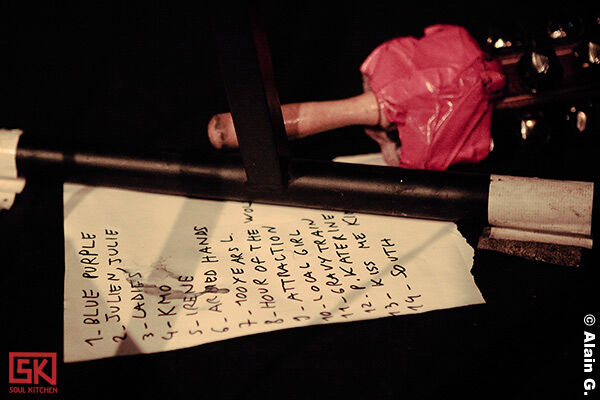 1_ BLUE PURPLE
2_ JULIEN JULIE
3_ LADIES
4_ KMO
5_ IRENE
6_ ARMED HANDS
7_ 100 YEARS L.
8_ HOUR OF THE WOL
9_ ATTRACTION
10_ LOCAL GIRL
11_ GRAVYTRAIN
12_ P. KATERINE
13_ KISS ME KI
14_ SOUTH
SK
SOUL KITCHEN
© Alain G.